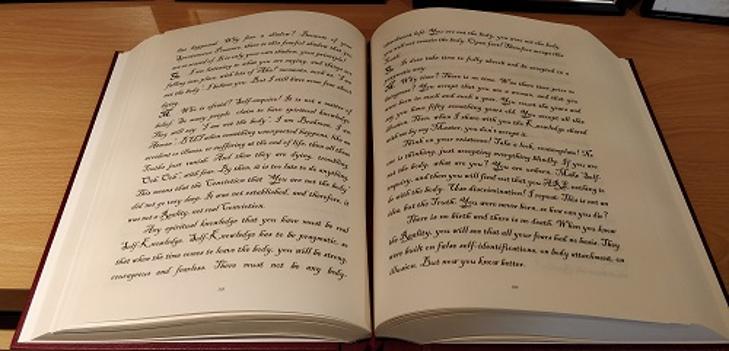 has happened. Why fear a shadow? Because of your
Spontaneous Presence, there is this fearful shadow that you
are so scared of. It is only your own shadow, your principle!
Q. I am listening to what you are saying, and things are
falling into place, with lots of 'Aha!' moments, such as, 'I am
not the body'. I believe you. But I still have some fear about
dying.
M. Who is afraid? Self-enquire! It is not a matter of
belief. So many people claim to have spiritual knowledge.
They will say 'I am not the body', 'I am Brahman, I am
Atman'. BUT when something unexpected happens, like an
accident or illness, or suffering at the end of life, then all these
Truths just vanish. And then they are dying, trembling,
'Ooh Ooh', with fear. By then, it is too late to do anything.
This means that the Conviction that 'You are not the body'
did not go very deep. It was not established, and therefore, it
was not a Reality, not real Conviction.
Any spiritual knowledge that you have must be real
Self-Knowledge. Self-Knowledge has to be pragmatic, so
that when the time comes to leave the body, you will be strong,
courageous and fearless. There must not be any body-
attachment left. You are not the body, you were not the body,
you will not remain the body. Open fact! Therefore accept this
Truth.
Q. It does take time to fully absorb and be accepted in a
pragmatic way.
M. Why time? There is no time. Was there time prior to
beingness? You accept that you are a woman, and that you
were born in such and such a year. You count the years and
say you have fifty something years old. You accept all this
illusion. Then, when I share with you the Knowledge shared
with me by my Master, you don't accept it.
Think on your existence! Take a look, contemplate! No
one is thinking, just accepting everything blindly. If you are
not the body, what are you? You are unborn. Make Self-
enquiry, and then you will find out that you ARE nothing to
do with the body. Use discrimination! I repeat: This is not an
idea, but the Truth. You were never born, so how can you die?
There is no birth and there is no death. When you know
the Reality, you will see that all your fears had no basis. They
were built on false self-identifications, on body attachment, on
illusion. But now you know better.